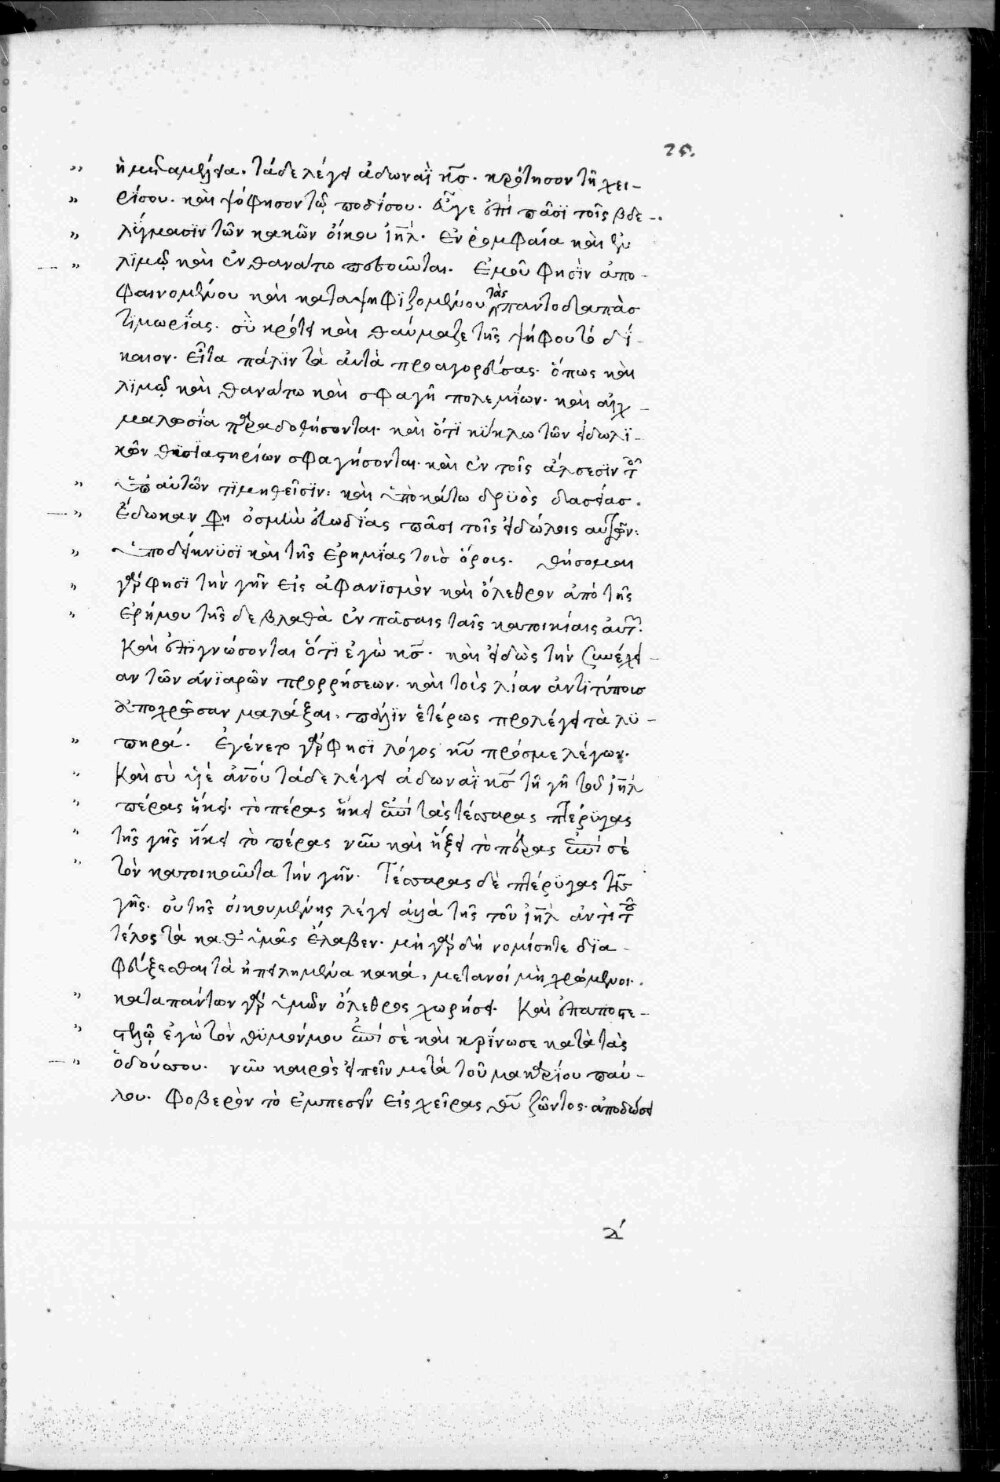 25.
ἡ μεταμέλεια. τάδε λέγει ἀδωναῒ κ̅ς̅. κρότησον τῇ χει-
ρίσου. καὶ ψόφησον τῷ ποδίσου. εὖγε ἐπὶ πᾶσϊ τοῖς βδε-
λύγμασϊν τῶν κακῶν οἴκου ἰη̅λ̅. ἐν ῥομφαία καὶ ἐν
λϊμῷ καὶ ἐν θανάτω πεσοῦνται. ἐμοῦ φησὶν ἀπο-
φαινομένου καὶ καταψηφϊζομένου τὰς παντοδαπὰσ
τϊμωρίας. σὺ κρότει καὶ θαύμαζε τῆς ψήφου τὸ δί-
καιον. εἶτα πάλϊν τὰ αὐτὰ προαγορεύσας. ὅπως καὶ
λϊμῷ καὶ θανάτω καὶ σφαγῇ πολεμίων. καὶ αἰχ-
μαλωσία παραδοθήσονται. καὶ ὅτϊ κύκλω τῶν εἰδωλϊ-
κῶν θυσϊαστηρίων σφαγήσονται. καὶ ἐν τοῖς ἄλσεσϊν τοῖς
ὑπ αὐτῶν τϊμηθεῖσϊν. καὶ ὑποκάτω δρυὸς δασείασ.
ἔδωκαν φη ὀσμὴν εὐωδίας πᾶσι τοῖς εἰδώλοις αὐτῶν.
ὑποδείκνυσϊ καὶ τῆς ἐρημίας τοὺσ ὅρους. θήσομαι
γάρ φησϊ τὴν γῆν εἰς ἀφανϊσμὸν καὶ ὄλεθρον ἀπὸ τῆς
ἐρήμου τῆς δεβλαθὰ ἐν πάσαις ταῖς κατοικίαις αὐτῶν.
καὶ ἐπϊγνώσονται ὅτϊ ἐγὼ κ̅ς̅. καὶ εἰδὼς τὴν συνέχει-
αν τῶν ἀνϊαρῶν προρρήσεων. καὶ τοὺς λίαν ἀντϊτύπουσ
ἀποχρῶσαν μαλάξαι. πάλϊν ἑτέρως προλέγει τὰ λυ-
πηρά. ἐγένετο γάρ φησϊ λόγος κ̅υ̅ πρόσμε λέγων.
καὶ σὺ υἱὲ ἀν̅ο̅υ̅ τάδε λέγει ἀδωναῒ κ̅ς̅ τῇ γῇ τοῦ ἰη̅λ̅
πέρας ἥκει. τὸ πέρας ἥκει ἐπὶ τὰς τέσσαρας πτέρυγας
τῆς γῆς ἥκει τὸ πέρας νῦν καὶ ἥξει τὸ πέρας ἐπὶ σὲ
τὸν κατοικοῦντα τὴν γῆν. τέσσαρας δὲ πτέρυγας τῆς
γῆς. οὐ τῆς οἰκουμένης λέγει ἀλλὰ τῆς τοῦ ἰη̅λ̅ ἀντὶ τοῦ
τέλος τὰ καθ ὑμᾶς ἔλαβεν. μὴ γὰρ δὴ νομίσητε δϊα-
φεύξεσθαι τὰ ἠπειλημένα κακά, μετανοία μὴ χρώμενοι.
κατα πάντων γὰρ ὑμῶν ὄλεθρος χωρήσει. καὶ ἐπαποστε-
στελῶ ἐγὼ τὸν θϋμόνμου ἐπὶ σὲ καὶ κρίνωσε κατὰ τὰς
ὁδούσσου. νῦν καιρὸς εἰπεῖν μετὰ τοῦ μακαρίου παύ-
λου. φοβερὸν τὸ ἐμπεσεῖν εἰς χεῖρας θ̅υ̅ ζῶντος. ἀποδώσει